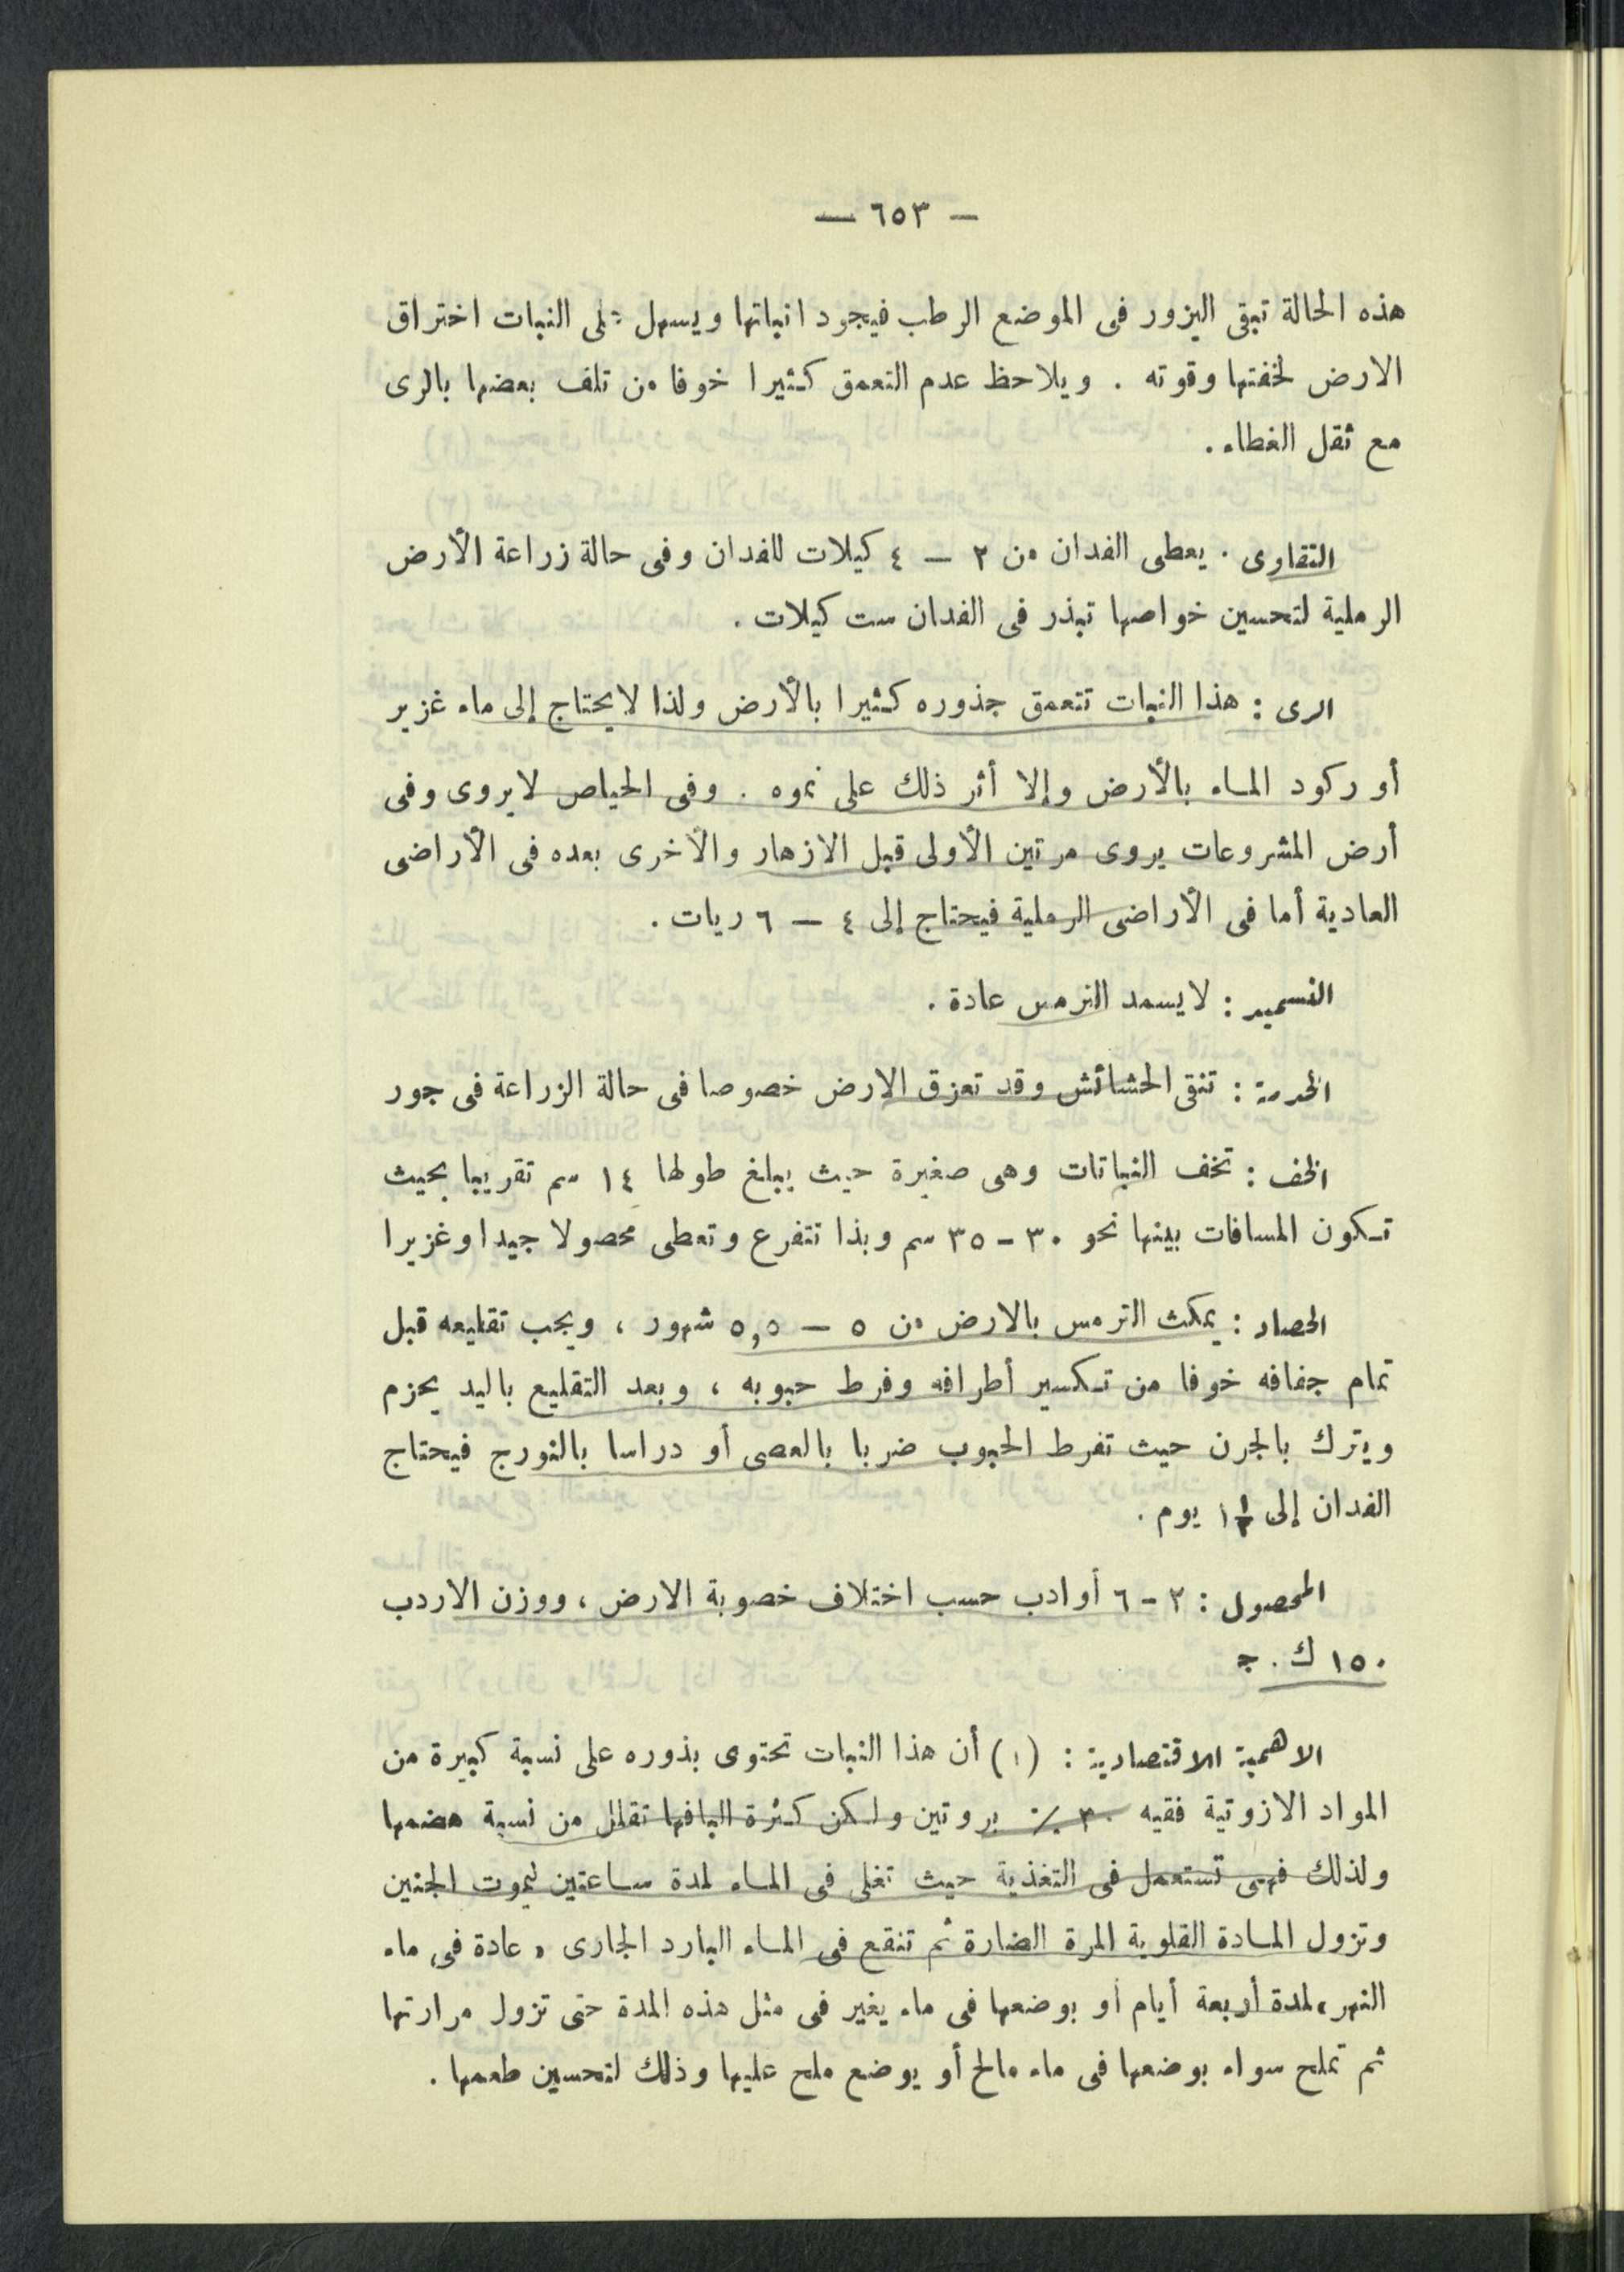 — ٦٥٣ —
هذه الحالة تبقى البزور فى الموضع الرطب فيجود انباتها ويسهل على النبات اختراق
الارض لخفتها وقوته . ويلاحظ عدم التعمق كثيرا خوفا من تلف بعضها بالرى
مع ثقل الغطاء .
التقاوى . يعطى الفدان من ٢ — ٤ كيلات للفدان وفى حالة زراعة الأرض
الرملية لتحسين خواصها تبذر فى الفدان ست كيلات .
الرى : هذا النبات تتعمق جذوره كثيرا بالأرض ولذا لا يحتاج إلى ماء غزير
أو ركود الماء بالأرض وإلا أثر ذلك على نموه . وفى الحياض لا يروى وفى
أرض المشروعات يروى مرتين الأولى قبل الازهار والأخرى بعده فى الأراضى
العادية أما فى الأراضى الرملية فيحتاج إلى ٤ — ٦ ريات .
التسميد : لا يسمد الترمس عادة .
الخدمة : تنقى الحشائش وقد تعزق الارض خصوصا فى حالة الزراعة فى جور
الخف : تخف النباتات وهى صغيرة حيث يبلغ طولها ١٤ سم تقريبا بحيث
تكون المسافات بينها نحو ٣٠ - ٣٥ سم وبذا تتفرع وتعطى محصولا جيدا وغزيرا
الحصاد : يمكث الترمس بالارض من ٥ — ٥,٥ شهور ، ويجب تقليعه قبل
تمام جفافه خوفا من تكسير أطرافه وفرط حبوبه ، وبعد التقليع باليد يحزم
ويترك بالجرن حيث تفرط الحبوب ضربا بالعصى أو دراسا بالنورج فيحتاج
الفدان إلى ١½ يوم .
المحصول : ٢ - ٦ أوادب حسب اختلاف خصوبة الارض ، ووزن الاردب
١٥٠ ك . ج
الاهمية الاقتصادية : (١) أن هذا النبات تحتوى بذوره على نسبة كبيرة من
المواد الازوتية فقيه ٣٠ ٪ بروتين ولكن كثرة اليافها تقلل من نسبة هضمها
ولذلك فهى تستعمل فى التغذية حيث تغلى فى الماء لمدة ساعتين ليموت الجنين
وتزول المادة القلوية المرة الضارة ثم تنقع فى الماء البارد الجارى « عادة فى ماء
النهر » لمدة أربعة أيام أو بوضعها فى ماء يغير فى مثل هذه المدة حتى تزول مرارتها
ثم تملح سواء بوضعها فى ماء مالح أو يوضع ملح عليها وذلك لتحسين طعمها .